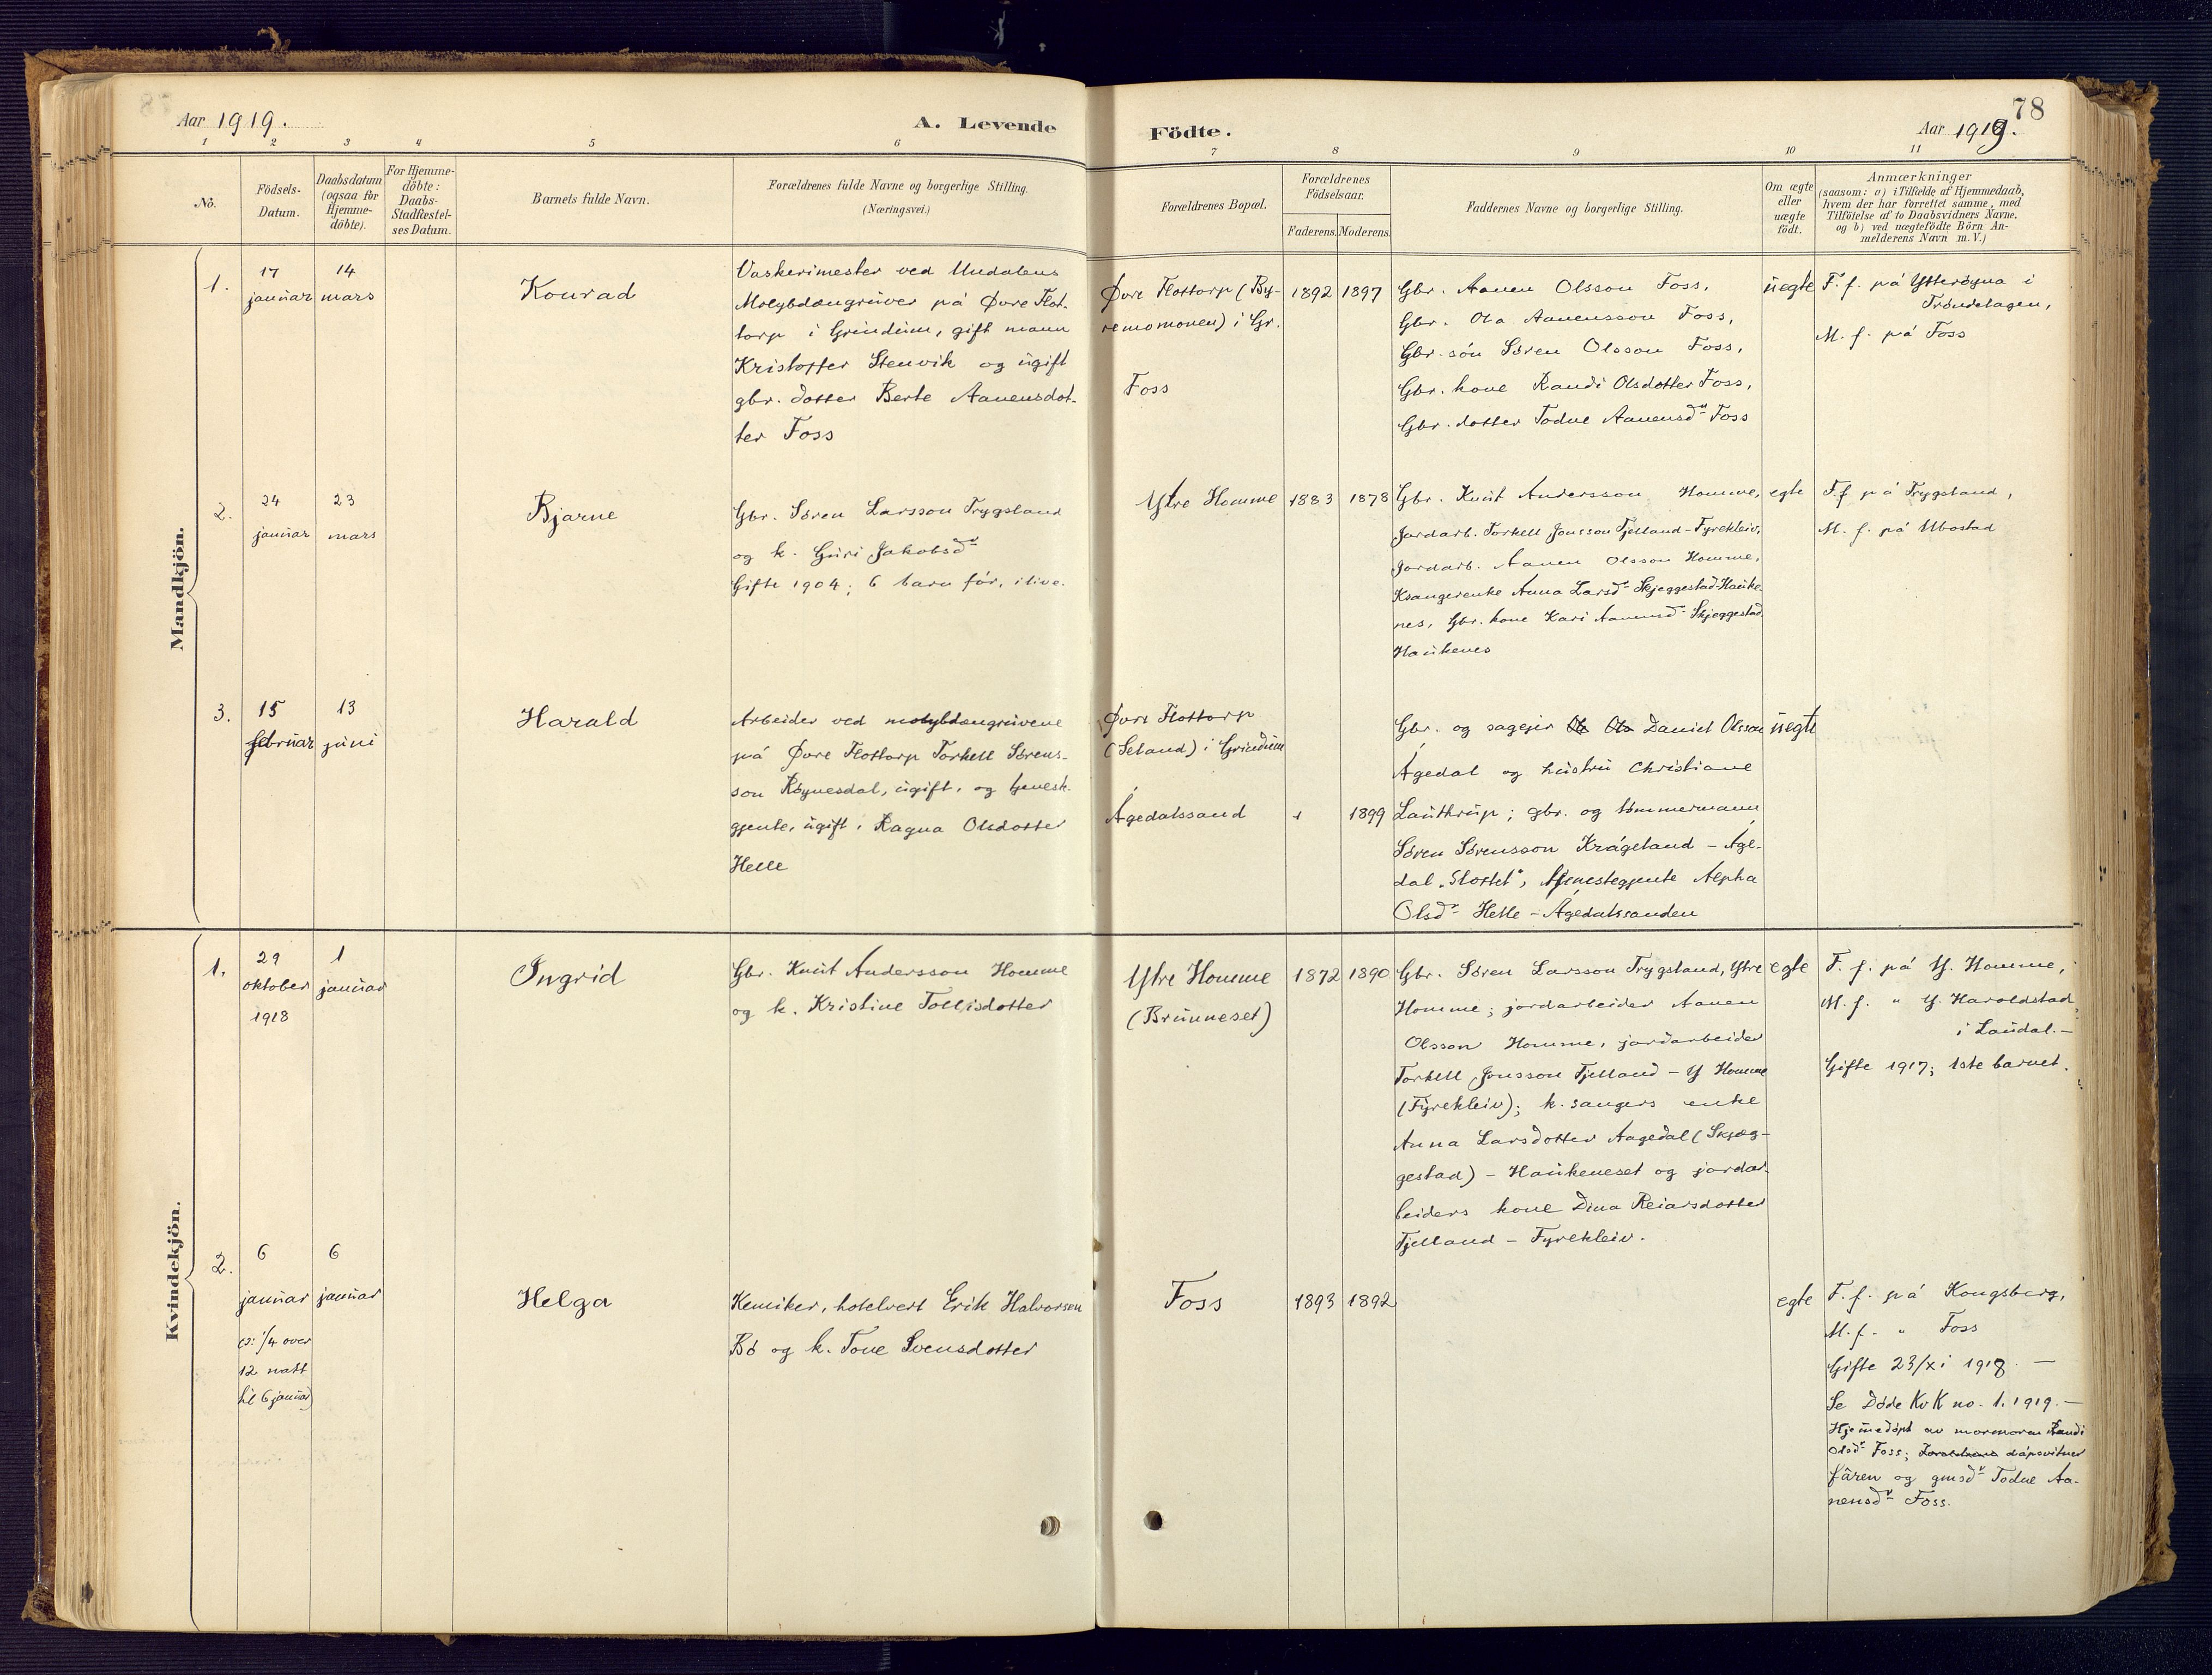 78
Aar 1919.
A. Levende
Födte.
Aar 1919.
1
2
3
4
5
6
7
8
9
10
11
No.
Födsels-
Datum.
Daabsdatum
(ogsaa for
Hjemme-
döbte).
For Hjemme-
döbte:
Daabs-
Stadfæstel-
ses Datum.
Barnets fulde Navn.
Forældrenes fulde Navne og borgerlige Stilling.
(Næringsvei.)
Forældrenes Bopæl.
Forældrenes
Födselsaar.
Faderens.
Moderens.
Faddernes Navne og borgerlige Stilling.
Om ægte
eller
uægte
födt.
Anmærkninger
(saasom: a) i Tilfælde af Hjemmedaab,
hvem der har forrettet samme, med
Tilföielse af to Daabsvidners Navne.
og b) ved uægtefödte Börn An-
melderens Navn m. V.)
Mandkjön.
1.
17
januar
14
mars
Konrad
Vaskerimester ved Undalens
Molybdængruver på Øvre Flot-
torp i Grindum, gift mann
Kristoffer Stenvik og ugift
gbr. dotter Berte Aanensdot-
ter Foss
Øvre Flottorp (By-
remomonen) i Gr.
Foss
1892
1897
Gbr. Aanen Olsson Foss,
Gbr. Ola Aanensson Foss,
Gbr. són Sören Olsson Foss,
Gbr. kone Randi Olsdotter Foss,
Gbr. dotter Todne Aanensdr Foss
uegte
F. f. på Ytterøyna i
Trøndelagen,
M. f. på Foss
2.
24
januar
23
mars
Bjarne
Gbr. Sören Larsson Trygsland
og k. Guri Jakobsdr
Gifte 1904; 6 barn før, ilive.
Ytre Homme
1883
1878
Gbr. Knut Andersson Homme,
Jordarb. Torkell Jonsson Tjelland-Fyrekleiv,
Jordarb. Aanen Olsson Homme,
Ksangerenke Anna Larsdr Skjeggestad-Hauke
nes, Gbr. kone Kari Aanensdr Skjeggestad
Haukenes
egte
F. f. på Trygsland,
M. f. på Ubostad
3.
15
februar
13
juni
Harald
Arbeider ved molybdængruvene
på Øvre Flottorp Torkell Sörens-
son Röynesdal, ugift, og tjenest-
gjente, ugift, Ragna Olsdotter
Helle
Øvre Flottorp
(Seland) i Grindum
Ågedalssand
1899
Gbr. og sageier Daniel Olsson
Ågedal og hustru Christiane
Lauthrup; gbr. og tömmermann
Sören Sörensson Krågeland - Åge-
dal "Slottet", tjenestegjente Alpha
Olsdr Helle - Ågedalssanden
uegte
Kvindekjön.
1.
29
oktober
1918
1
januar
Ingrid
Gbr. Knut Andersson Homme
og k. Kristine Tollisdotter
Ytre Homme
(Brunneset)
1872
1890
Gbr. Sören Larsson Trygsland, Ytre
Homme; jordarbeider Aanen
Olsson Homme, jordarbeider
Torkell Jonsson Tjelland - Y Homme
(Fyrekleiv); k. sangers enke
Anna Larsdotter Aagedal (Skjæg-
gestad) - Haukeneset og jordar-
beiders kone Dina Reiarsdotter
Tjelland - Fyrekleiv.
egte
F. f. på Y. Homme,
M. f. " Y. Haroldstad
i Laudal.-
Gifte 1917; 1ste barnet.
2.
6
januar
(ɔ: 1/4 over
12 natt
til 6 januar)
6
januar
Helga
Kemiker, hotelvert Erik Halvorsen
Bö og k. Tone Svensdotter
Foss
1893
1892
egte
F. f. på Kongsberg,
M. f. " Foss
Gifte 23/xi 1918 -
Se Döde KvK no. 1. 1919.-
Hjemmedöpt av mormoren Randi
Olsdr Foss; dåpsvitner
fåren og gmsdr Todne Aa-
nensdr Foss.